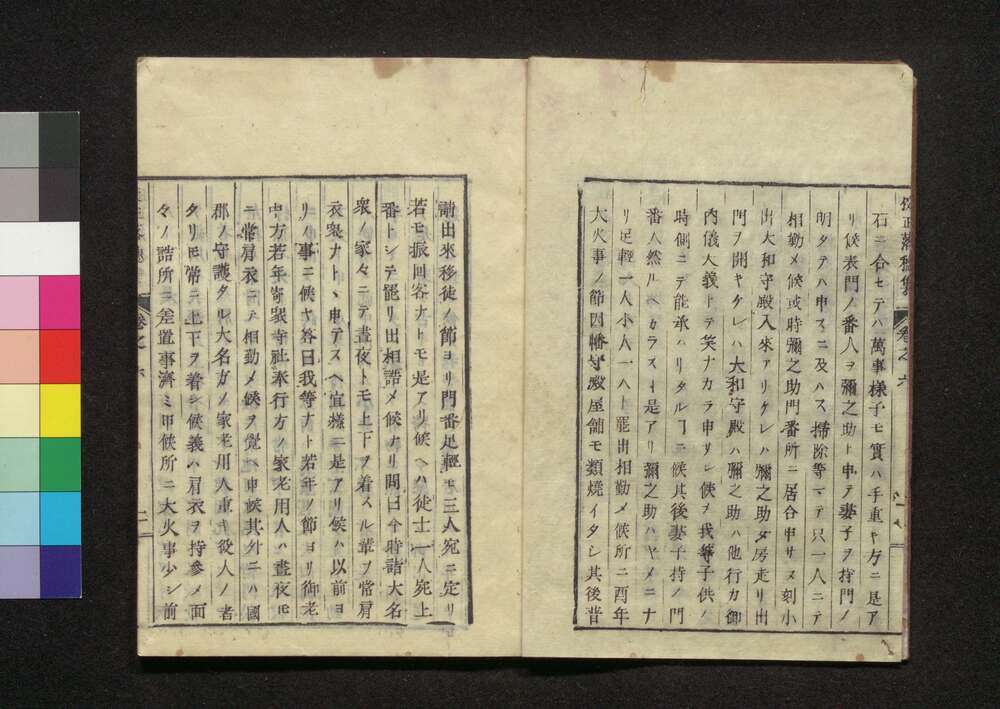 石ニ合セテハ萬事様子モ實ハ手重キ方ニ是ア
リ候表門ノ番人ヲ彌之助ト申テ妻子ヲ持門ノ
明タテハ申スニ及ハス掃除等マテ只一人ニテ
相勤メ候或時彌之助門番所ニ居合申サヌ刻小
出大和守殿入來アリケレハ彌之助女房走リ出
門ヲ開キケレハ大和守殿ハ彌之助ハ他行カ御
内儀大義トテ笑ナカラ申サレシ候ヲ我等子供ノ
時側ニテ能承ハリタルヿニ候其後妻子持ノ門
番人然ルヘカラスト是アリ彌之助ハヤメニナ
リ足輕一人小人一人ト罷出相勤メ候所ニ酉年
大火事ノ節因幡守殿屋舗モ類焼イタシ其後普
請出來移徒ノ節ヨリ門番足輕モ三人宛ニ定リ
若モ振回客ナトモ是アリ候ヘハ徒士一人宛上
番トシテ罷リ出相詰メ候ナリ問曰今時諸大名
衆ノ家々ニテ晝夜トモ上下ヲ着スル輩ヲ常肩
衣衆ナト丶申テスヘ宜様ニ是アリ候ハ以前ヨ
リノ事ニ候ヤ答曰我等ナト若年ノ節ヨリ御老
中方若年寄衆寺社奉行方ノ家老用人ハ晝夜トモ
ニ常肩衣ニテ相勤メ候ヲ覺ヘ申候其外ニハ國
郡ノ守護タル大名方ノ家老用人重キ役人ノ者
タリモ常ニ上下ヲ着シ候義ハ肩衣ヲ持參メ面
々ノ詰所ニ差置事濟ミ申候所ニ大火事少シ前
巻之六